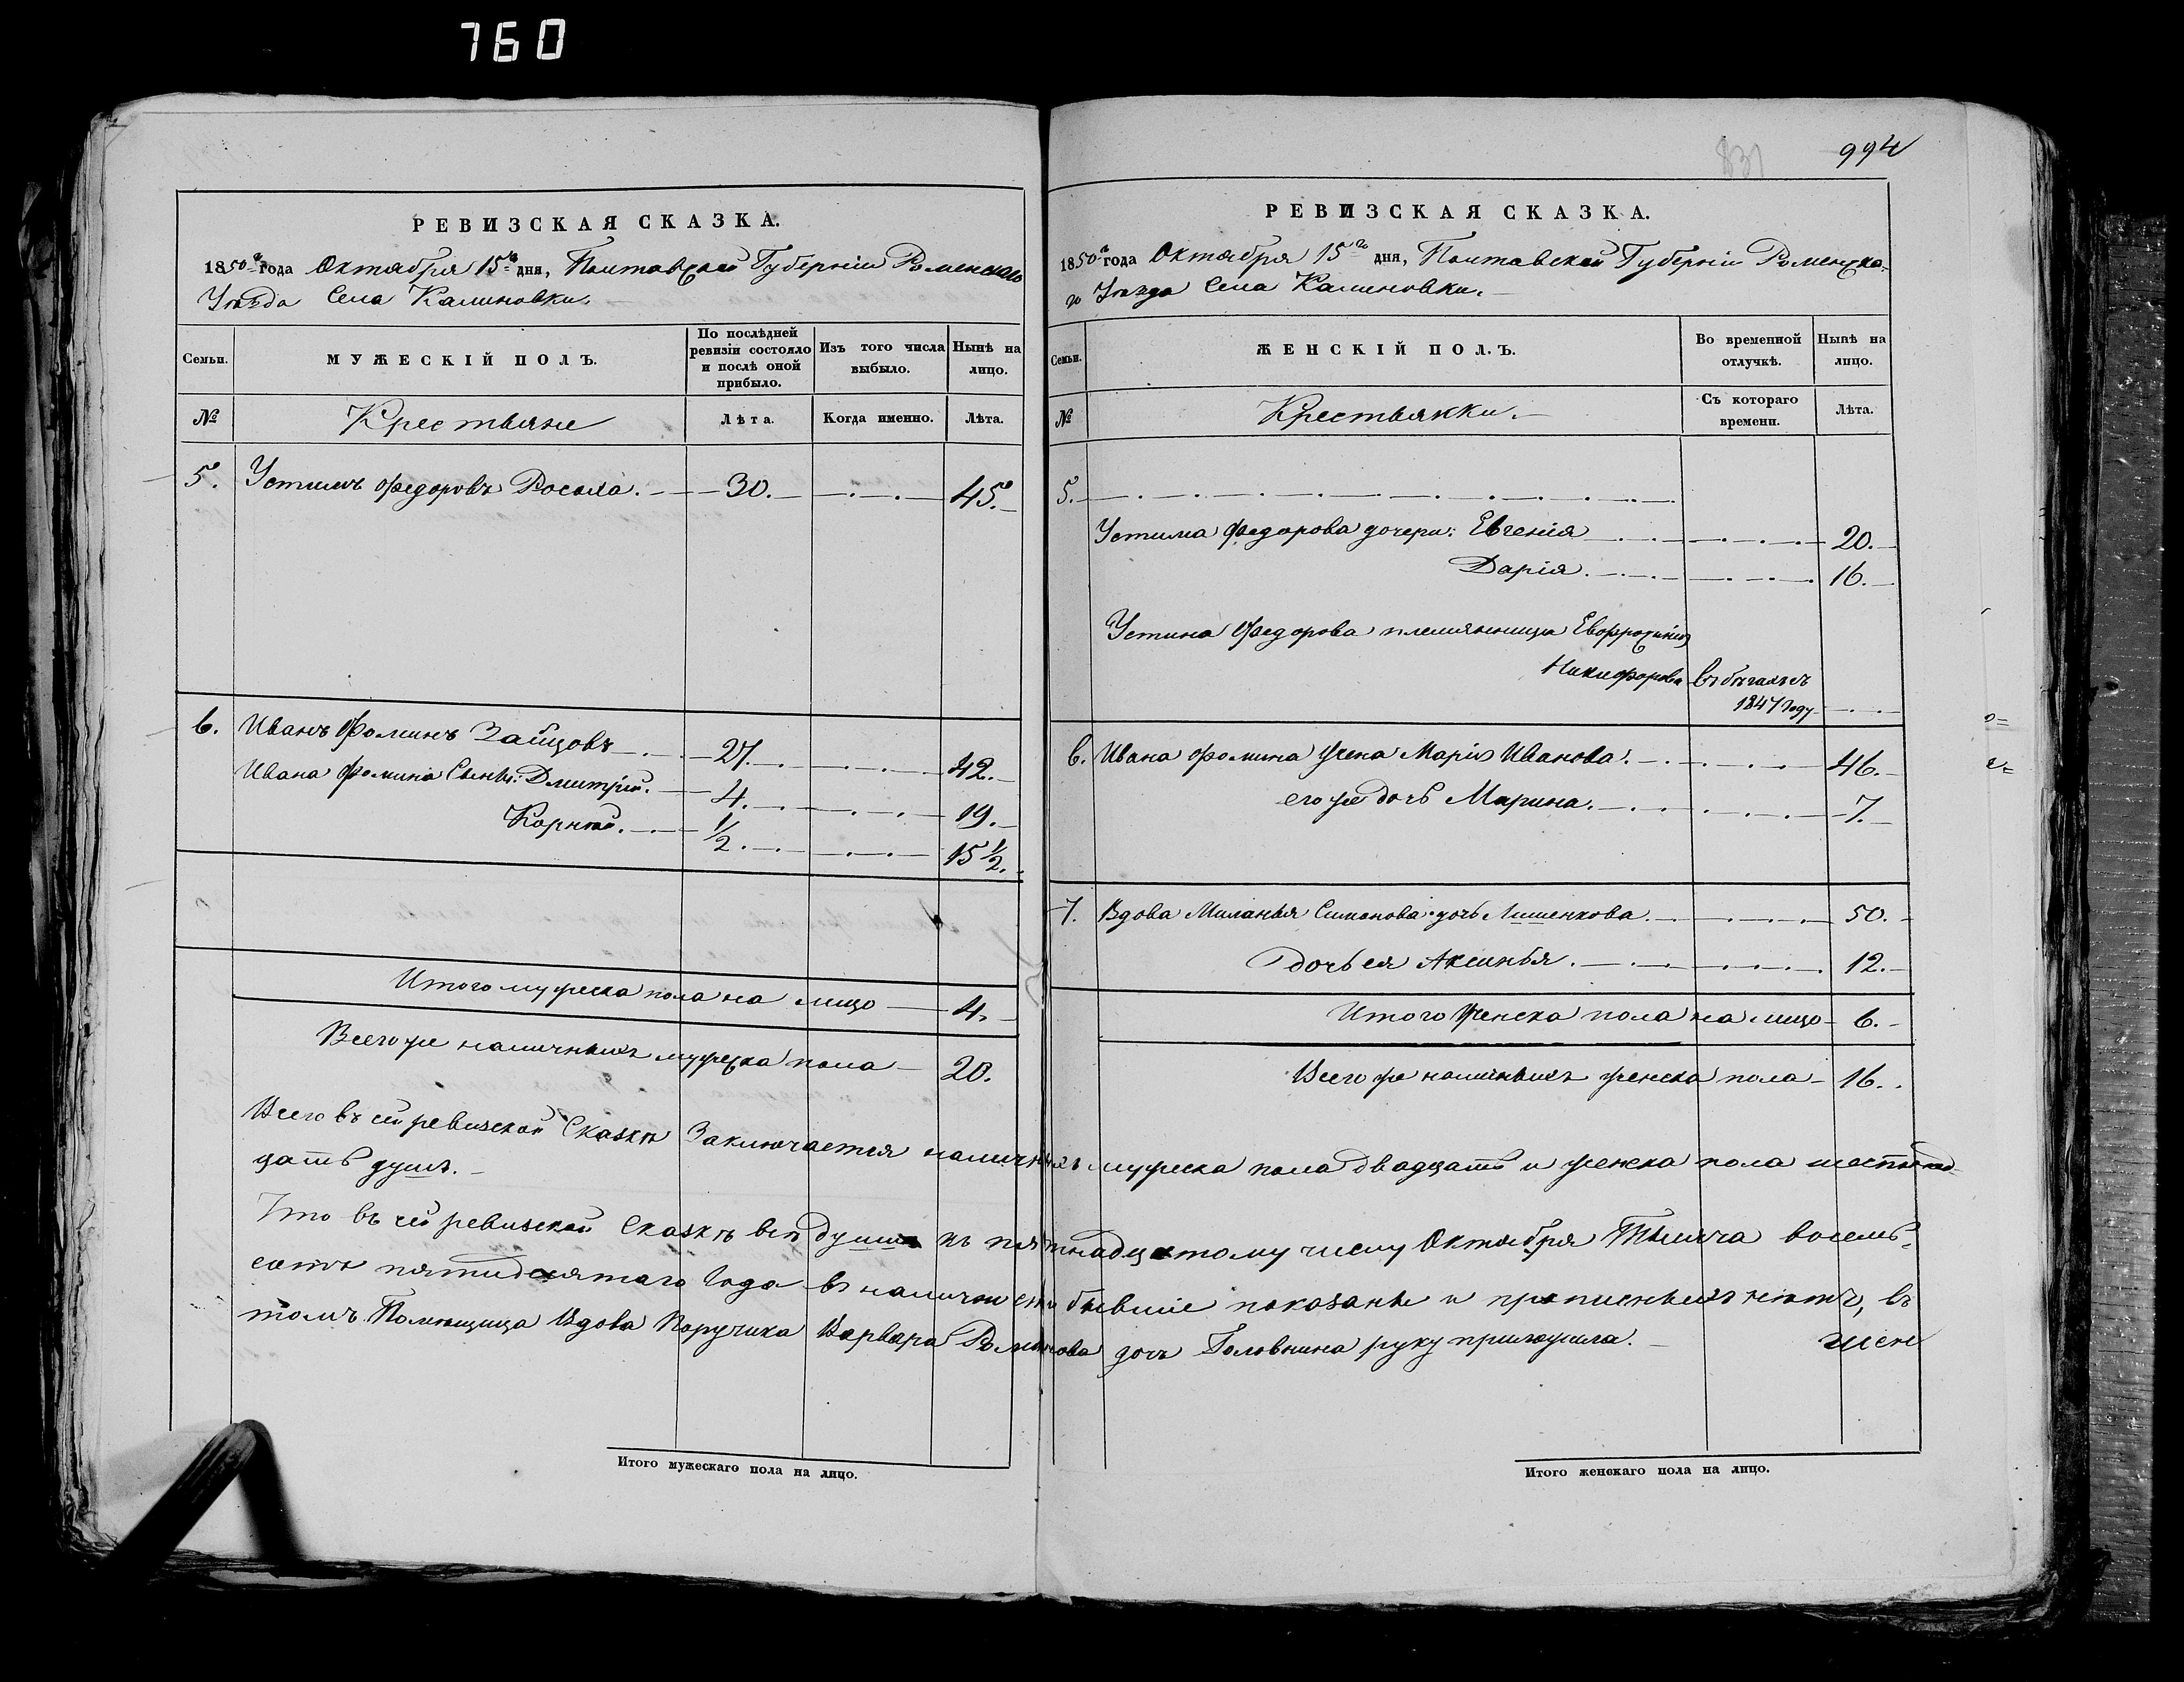 760
РЕВИЗСКАЯ СКАЗКА.
1850го года Октября 15го дня, Полтавской Губерніи Роменскаго
Уѣзда Села Калиновки.
Семьи.
МУЖЕСКІЙ ПОЛЪ.
По послѣдней ревизіи состояло и послѣ оной прибыло.
Изъ того числа выбыло.
Нынѣ на лицо.
№
Крестьяне
Лѣта.
Когда именно.
Лѣта.
5. Устимъ Федоровъ 30. 45.
6. Иванъ Фоминъ Зайцовъ 27. 42.
Ивана Фомина Сыны: Дмитрій. 4. 19.
Корнѣй. 1/2. 15 1/2.
Итого мужеска пола на лицо 4.
Всего же наличныхъ мужеска пола 20.
831
994
РЕВИЗСКАЯ СКАЗКА.
1850го года Октября 15го дня, Полтавской Губерніи Роменска-
го Уѣзда Села Калиновки.
Семьи.
ЖЕНСКІЙ ПОЛЪ.
Во временной отлучкѣ.
Нынѣ на лицо.
№
Крестьянки.
Съ котораго времени.
Лѣта.
5.
Устима Федорова дочери: Евгенія 20.
Дарія. 16.
Устина Федорова племянница Евфросинія
Никифорова въ бѣгахъ съ
1847 году
6. Ивана Фомина жена Марія Иванова. 46.
его же дочь Марина. 7.
7. Вдова Миланья Симонова дочь Лишенкова. 50.
Дочь ея Аксинья. 12.
Итого женска пола на лицо 6.
Всего же наличныхъ женска пола 16.
Всего въ сей ревизской Сказкѣ Заключается наличныхъ мужеска пола двадцать и женска пола шестьнад-
цать душъ.
Что въ сей ревизской Сказкѣ всѣ души къ пятнадцатому числу Октября Тысяча восемь-
сотъ пятидесятаго Года въ наличности бывшіе показаны и прописныхъ нѣтъ, въ
томъ Помѣщица Вдова Поручика Варвара Романова дочь Головнина руку приложила.
Итого мужескаго пола на лицо.
Итого женскаго пола на лицо.